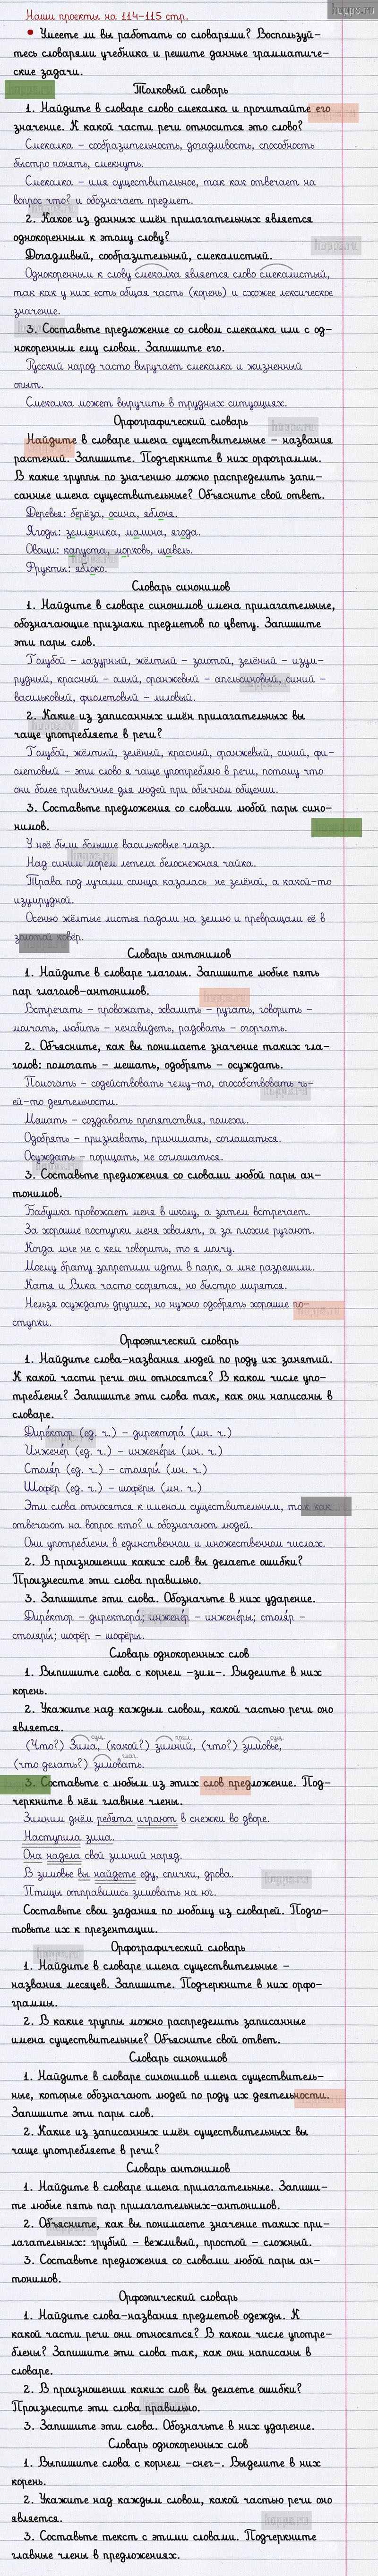 Наши проекты на 114-115 стр.
Умеете ли вы работать со словарями? Воспользуй-
тесь словарями учебника и решите данные грамматиче-
ские задачи.
Толковый словарь
1. Найдите в словаре слово смекалка и прочитайте его
значение. К какой части речи относится это слово?
Смекалка – сообразительность, догадливость, способность
быстро понять, смекнуть.
Смекалка – имя существительное, так как отвечает на
вопрос что? и обозначает предмет.
2. Какое из данных имён прилагательных является
однокоренным к этому слову?
Догадливый, сообразительный, смекалистый.
Однокоренным к слову смекалка является слово смекалистый,
так как у них есть общая часть (корень) и схожее лексическое
значение.
3. Составьте предложение со словом смекалка или с од-
нокоренным ему словом. Запишите его.
Русский народ часто выручает смекалка и жизненный
опыт.
Смекалка может выручить в трудных ситуациях.
Орфографический словарь
Найдите в словаре имена существительные – названия
растений. Запишите. Подчеркните в них орфограммы.
В какие группы по значению можно распределить запи-
санные имена существительные? Объясните свой ответ.
Деревья: берёза, осина, яблоня.
Ягоды: земляника, малина, ягода.
Овощи: капуста, морковь, щавель.
Фрукты: яблоко.
Словарь синонимов
1. Найдите в словаре синонимов имена прилагательные,
обозначающие признаки предметов по цвету. Запишите
эти пары слов.
Голубой – лазурный, жёлтый – золотой, зелёный – изум-
рудный, красный – алый, оранжевый – апельсиновый, синий –
васильковый, фиолетовый – лиловый.
2. Какие из записанных имён прилагательных вы
чаще употребляете в речи?
Голубой, жёлтый, зелёный, красный, оранжевый, синий, фи-
олетовый – эти слова я чаще употребляю в речи, потому что
они более привычные для людей при обычном общении.
3. Составьте предложения со словами любой пары сино-
нимов.
У неё были большие васильковые глаза.
Над синим морем летела белоснежная чайка.
Трава под лучами солнца казалась не зелёной, а какой-то
изумрудной.
Осенью жёлтые листья падали на землю и превращали её в
золотой ковёр.
Словарь антонимов
1. Найдите в словаре глаголы. Запишите любые пять
пар глаголов-антонимов.
Встречать – провожать, хвалить – ругать, говорить –
молчать, любить – ненавидеть, радовать – огорчать.
2. Объясните, как вы понимаете значение таких гла-
голов: помогать – мешать, одобрять – осуждать.
Помогать – содействовать чему-то, способствовать чь-
ей-то деятельности.
Мешать – создавать препятствия, помехи.
Одобрять – признавать, принимать, соглашаться.
Осуждать – порицать, не соглашаться.
3. Составьте предложения со словами любой пары ан-
тонимов.
Бабушка провожает меня в школу, а затем встречает.
За хорошие поступки меня хвалят, а за плохие ругают.
Когда мне не с кем говорить, то я молчу.
Моему брату запретили идти в парк, а мне разрешили.
Катя и Вика часто ссорятся, но быстро мирятся.
Нельзя осуждать других, но нужно одобрять хорошие по-
ступки.
Орфоэпический словарь
1. Найдите слова-названия людей по роду их занятий.
К какой части речи они относятся? В каком числе упо-
треблены? Запишите эти слова так, как они написаны в
словаре.
Дире́ктор (ед. ч.) – директора́ (мн. ч.)
Инжене́р (ед. ч.) – инжене́ры (мн. ч.)
Столя́р (ед. ч.) – столяры́ (мн. ч.)
Шофёр (ед. ч.) – шофёры (мн. ч.)
Эти слова относятся к именам существительным, так как
отвечают на вопрос кто? и обозначают людей.
Они употреблены в единственном и множественном числах.
2. В произношении каких слов вы делаете ошибки?
Произнесите эти слова правильно.
3. Запишите эти слова. Обозначьте в них ударение.
Дире́ктор – директора́; инжене́р – инжене́ры; столя́р –
столяры́; шофёр – шофёры.
Словарь однокоренных слов
1. Выпишите слова с корнем -зим-. Выделите в них
корень.
2. Укажите над каждым словом, какой частью речи оно
является.
сущ. прил. сущ.
(Что?) Зима, (какой?) зимний, (что?) зимовье,
глаг.
(что делать?) зимовать.
3. Составьте с любым из этих слов предложение. Под-
черкните в нём главные члены.
Зимним днём ребята играют в снежки во дворе.
Наступила зима.
Она надела свой зимний наряд.
В зимовье вы найдете еду, спички, дрова.
Птицы отправились зимовать на юг.
Составьте свои задания по любому из словарей. Подго-
товьте их к презентации.
Орфографический словарь
1. Найдите в словаре имена существительные –
названия месяцев. Запишите. Подчеркните в них орфо-
граммы.
2. В какие группы можно распределить записанные
имена существительные? Объясните свой ответ.
Словарь синонимов
1. Найдите в словаре синонимов имена существитель-
ные, которые обозначают людей по роду их деятельности.
Запишите эти пары слов.
2. Какие из записанных имён существительных вы
чаще употребляете в речи?
Словарь антонимов
1. Найдите в словаре имена прилагательные. Запиши-
те любые пять пар прилагательных-антонимов.
2. Объясните, как вы понимаете значение таких при-
лагательных: грубый – вежливый, простой – сложный.
3. Составьте предложения со словами любой пары ан-
тонимов.
Орфоэпический словарь
1. Найдите слова-названия предметов одежды. К
какой части речи они относятся? В каком числе употре-
блены? Запишите эти слова так, как они написаны в
словаре.
2. В произношении каких слов вы делаете ошибки?
Произнесите эти слова правильно.
3. Запишите эти слова. Обозначьте в них ударение.
Словарь однокоренных слов
1. Выпишите слова с корнем -снег-. Выделите в них
корень.
2. Укажите над каждым словом, какой частью речи оно
является.
3. Составьте текст с этими словами. Подчеркните
главные члены в предложениях.